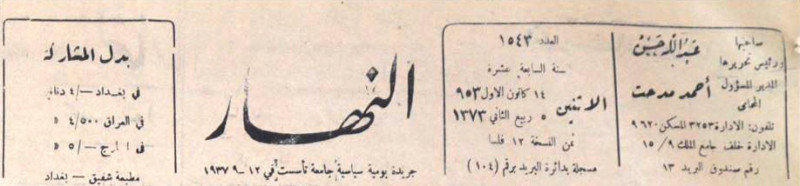 صاحبها
ورئيس تحريرها
عبدالله حسين
المدير المسؤول
المحامي
أحمد مدحت
تلفون: الادارة ٣٢٥٣ المسكن ٩٦٢٠
الادارة خلف جامع الملك ١٥/٩
رقم صندوق البريد ١٣
العدد ١٥٤٣
سنة السابعة عشرة
الاثنين
١٤ كانون الاول ٩٥٣
٥ ربيع الثاني ١٣٧٣
ثمن النسخة ١٢ فلسا
مسجلة بدائرة البريد برقم (١٠٤)
النهار
جريدة يومية سياسية جامعة تأسست في ١٢-٩-١٩٣٧
بدل المشاركة
في بغداد —/٤
في العراق ٤/٥٠٠ »
في الخارج —/٥ »
مطبعة شفيق - بغداد